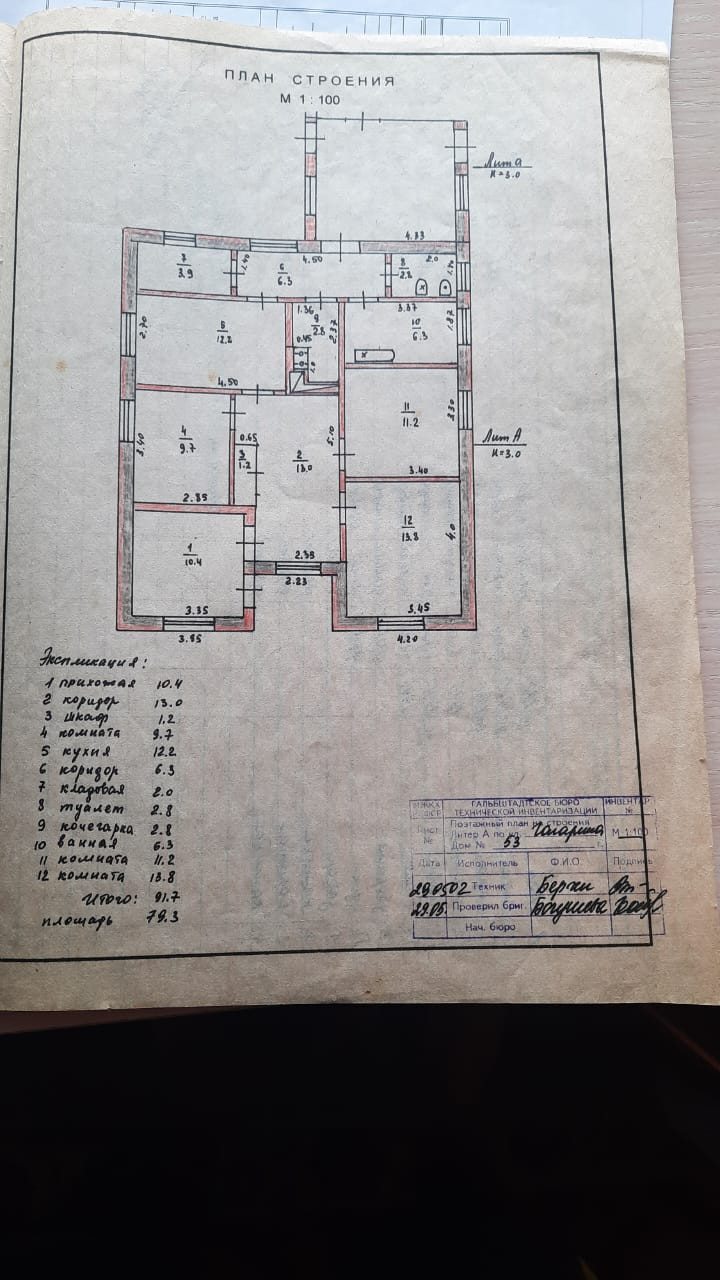 ПЛАН СТРОЕНИЯ
М 1 : 100
Лит а
н=3.0
4.33
7
3.9
1.40
4.50
6
6.3
8
2.8
2.0
1.40
2.70
5
12.2
4.50
1.36
9
2.8
2.37
0.45
1.0
3.37
10
6.3
1.87
3.40
4
9.7
2.85
0.65
3
1.2
2
13.0
5.10
11
11.2
3.30
3.40
Лит А
н=3.0
1
10.4
3.35
3.85
2.35
2.23
12
13.8
4.0
3.45
4.20
Экспликация:
1 прихожая 10.4
2 коридор 13.0
3 шкаф 1.2
4 комната 9.7
5 кухня 12.2
6 коридор 6.3
7 кладовая 2.0
8 туалет 2.8
9 кочегарка 2.8
10 ванная 6.3
11 комната 11.2
12 комната 13.8
Итого: 91.7
площадь 79.3
МЖКХ РСФСР
ГАЛЬБШТАДТСКОЕ БЮРО ТЕХНИЧЕСКОЙ ИНВЕНТАРИЗАЦИИ
ИНВЕНТАР №
Лист №
Поэтажный план на строения
Литер А по ул. Гагарина
Дом № 53 г.
М 1:100
Дата Исполнитель Ф.И.О. Подпись
290502 Техник
29.05. Проверил бриг.
Нач. бюро